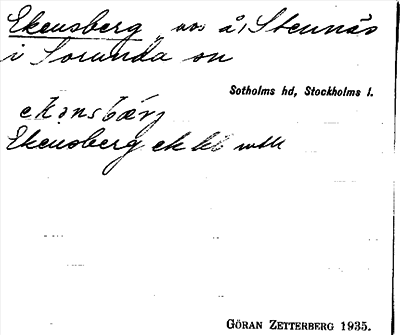 Ekensberg vos å Stennäs
i Sorunda sn
Sotholms hd, Stockholms l.
ekənsbærj
Ekensberg ek kb
GÖRAN ZETTERBERG 1935.